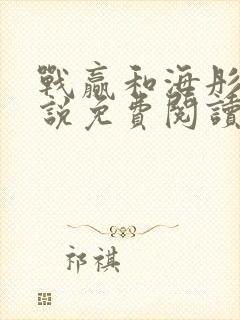 戰贏和海彤
說免費閱讀
祁祺